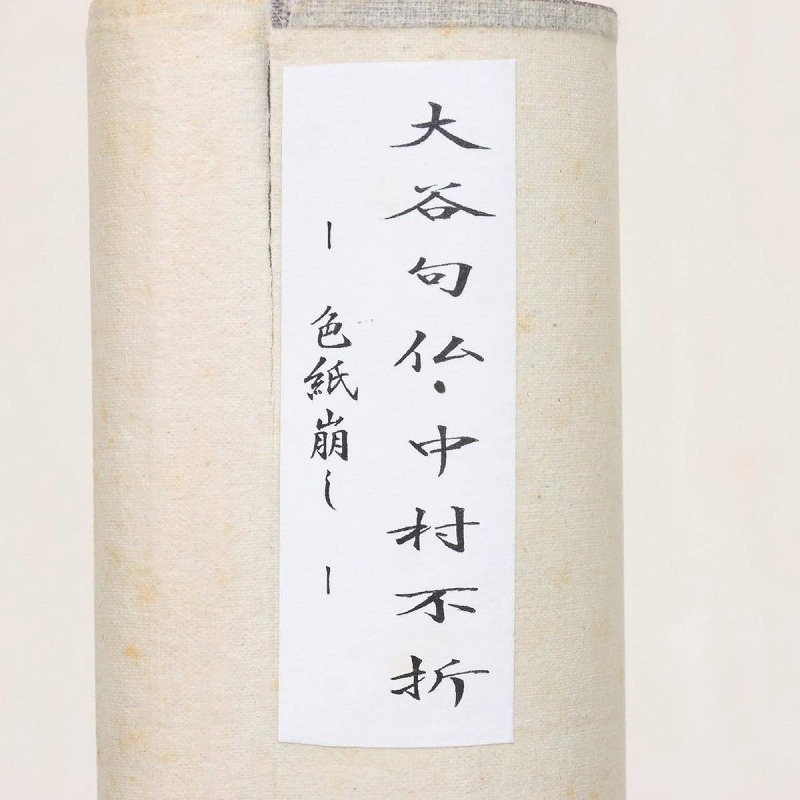 大谷句仏・中村不折
ー色紙崩しー